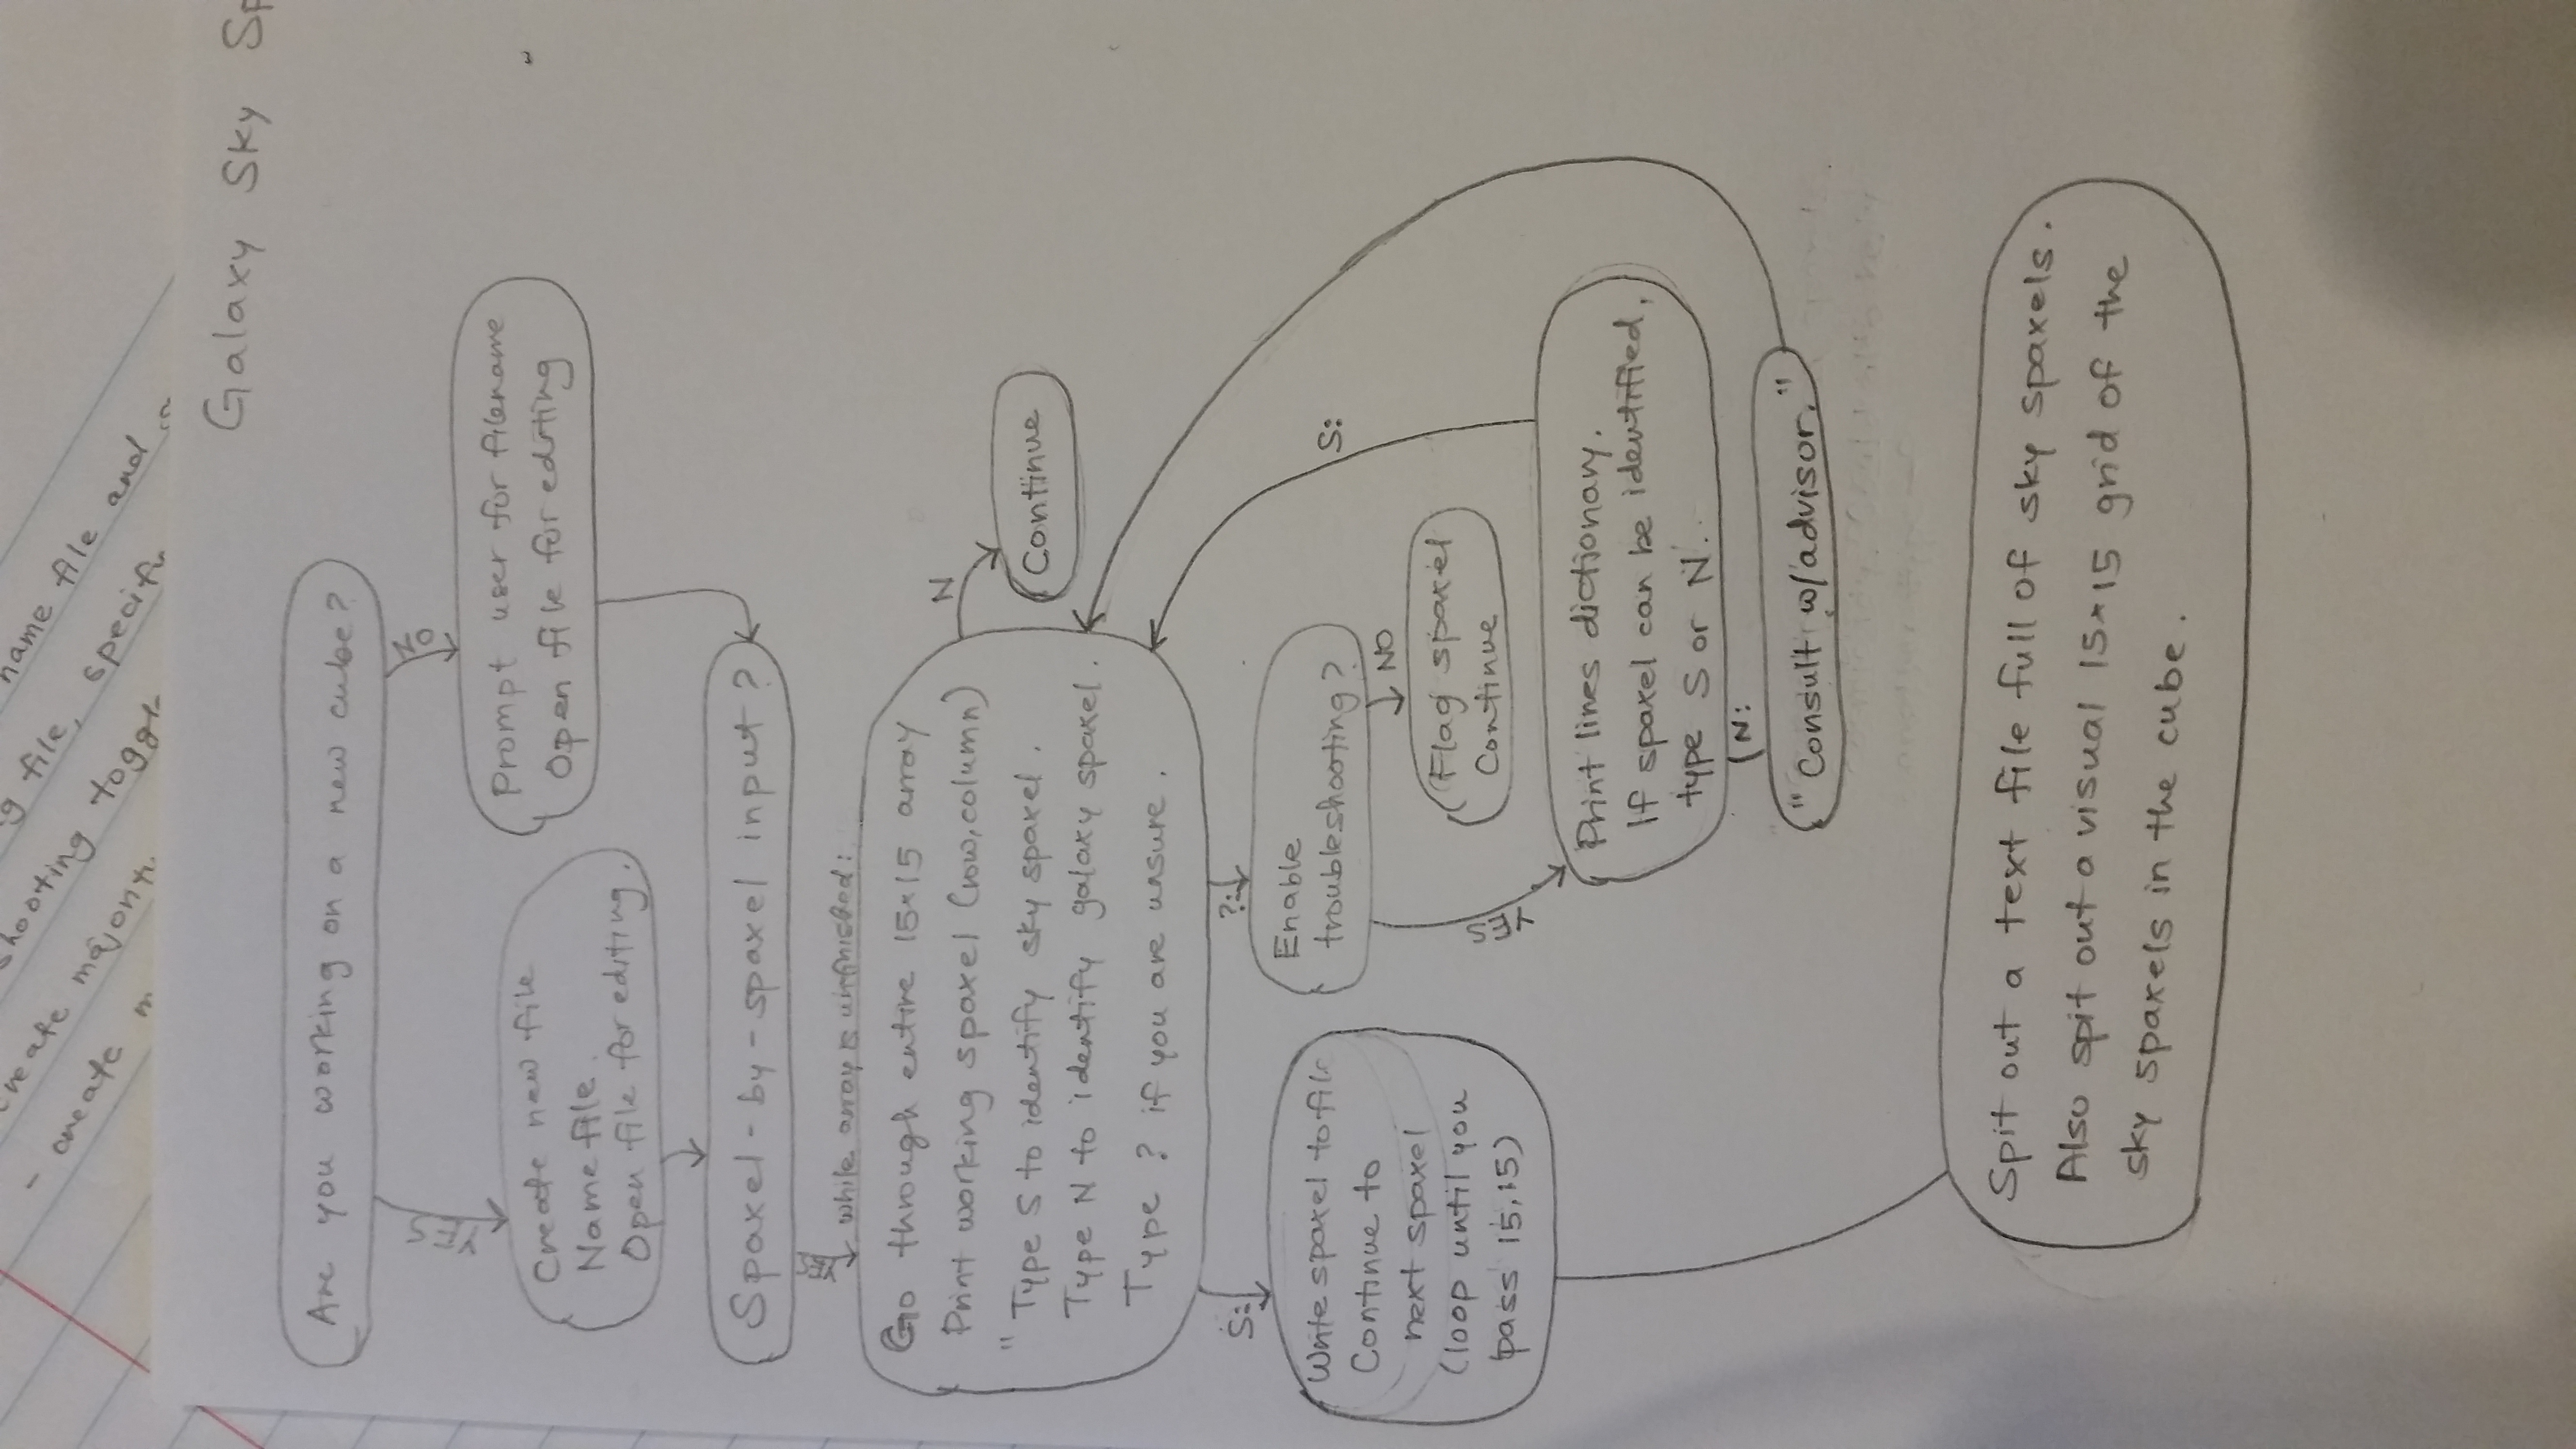 name file and
g file, specify
shooting toggle
create majority
- create m
Galaxy Sky Sp
Are you working on a new cube?
YES
NO
Create new file
Name file.
Open file for editing.
Prompt user for filename
Open file for editing
Spaxel-by-spaxel input?
YES
while array is unfinished:
Go through entire 15×15 array
Print working spaxel (row,column)
"Type S to identify sky spaxel.
Type N to identify galaxy spaxel.
Type ? if you are unsure.
N
Continue
S:
?:
Write spaxel to file
Continue to
next spaxel
(loop until you
pass 15,15)
Enable
troubleshooting?
NO
Flag spaxel
Continue
YES
S:
Print lines dictionary.
If spaxel can be identified,
type S or N..
N:
"Consult w/advisor."
Spit out a text file full of sky spaxels.
Also spit out a visual 15×15 grid of the
sky spaxels in the cube.